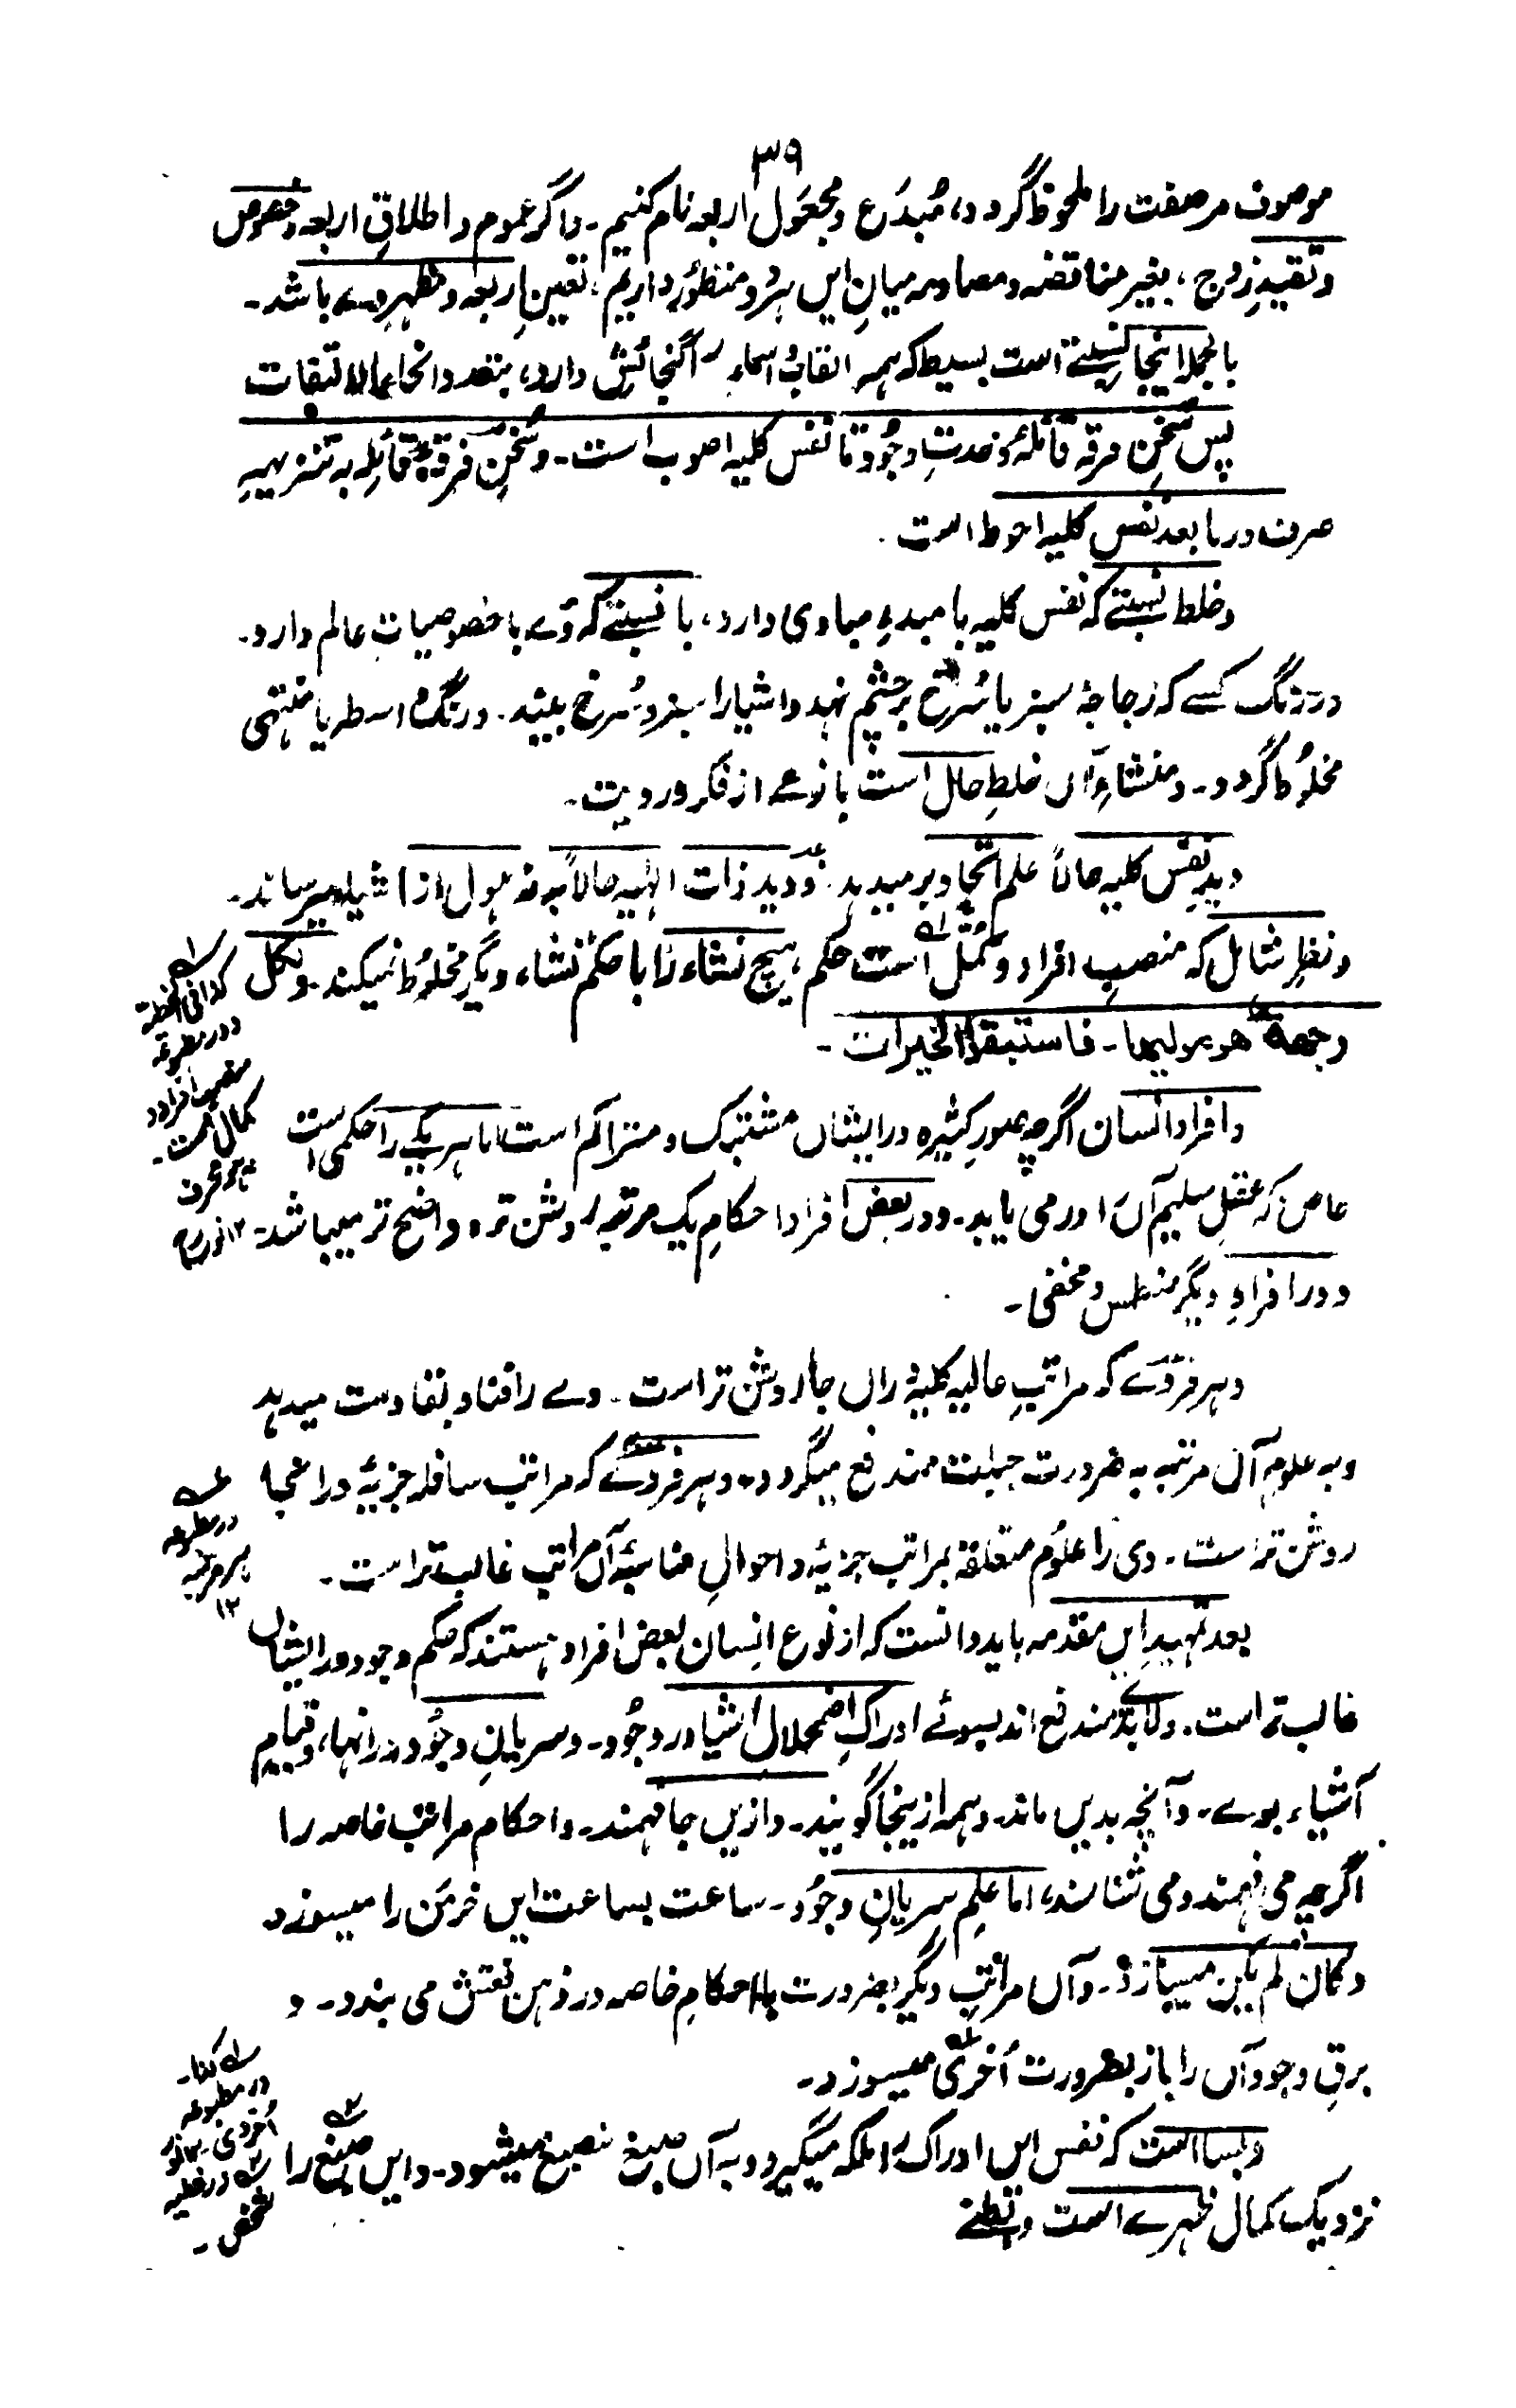 ۳۹
موصوف مر صفت را ملحوظ گردد، مُبدَع و مجعول اربعہ نام کنیم۔ و اگر عموم و اطلاقِ اربعہ و خصوص
و تقیدِ زوج، بغیر مناقضہ و مصادمہ میانِ ایں ہر دو منظور داریم، تعینِ اربعہ و مظہرِ وے باشد۔
بالجملہ اینجا نسبتے است بسیط کہ ہمہ القاب و اسماء را گنجائش دارد، بتعدد انحاء الالتفات
پس سُخنِ فرقہ قائلۂ وحدتِ وجُود تا نفس کلیہ اصوب است۔ و سُخنِ فرقۂ قائلہ بہ تنزیہِ
صرف در ما بعد نفسِ کلیہ احوط است۔
و خلط نسبتے کہ نفس کلیہ با مبدءِ مبادی دارد، با نسبتے کہ وَے با خصوصیاتِ عالم دارد۔
در رنگ کسے کہ زجاجۂ سبز یا سُرخ بر چشم نہد و اشیا را سبز و سُرخ بیند۔ و رنگ
مخلُوط گردد۔ و منشاءِ آں خلطِ حال است با نوعے از فکر و رویت۔
و دیدِ نفس کلیہ حالاً علم اتحاد بر میدہد۔ و دیدِ ذات الٰہیہ حالاً بہ ذہول از اشیاء میرساند۔
و نظرِ شامل کہ منصبِ افراد و کُمَّل است حکم ہیچ نشاء را با حکم نشاءِ دیگر مخلوط نمیکند۔ و لکل
وجهة هو موليها۔ فاستبقوا الخيرات۔
و افراد انسان اگرچہ صورِ کثیرہ در ایشاں مشتبک و متراکم است اما ہر یکے را حکمی است
خاص کہ عقلِ سلیم آں را در می یابد۔ و در بعض افراد احکامِ یک مرتبہ روشن تر و واضح تر میباشد۔
و در افرادِ دیگر منطمس و مخفی۔
و ہر فردے کہ مراتبِ عالیہ کلیہ دراں جا روشن تر است۔ وے را فنا و بقا دست میدہد
و بہ علومِ آں مرتبہ بہ ضرورت جبلت مندفع میگردد۔ و ہر فردے کہ مراتب سافلہ جزئیہ در اینجا
روشن تر است۔ وی را علوم متعلقہ بمراتب جزئیہ و احوالِ مناسبۂ آں مراتب غالب تر است۔
بعد تمہیدِ ایں مقدمہ باید دانست کہ از نوع انسان بعض افراد ہستند کہ حکم وجود در ایشاں
غالب تر است۔ و لابد مندفع اند بسوئے ادراکِ اضمحلالِ اشیا در وجُود۔ و سریانِ وجُود در آنہا، و قیامِ
اشیاء بوے۔ و آنچہ بدیں ماند۔ و ہمہ ازینجا گویند۔ و ازیں جا فہمند۔ و احکام مراتب خاصہ را
اگرچہ می فہمند و می شناسند، اما علمِ سریانِ وجُود۔ ساعت بساعت ایں خرمن را میسوزد
و کان لم یکن میسازد۔ و آں مراتبِ دیگر بضرورت با احکامِ خاصہ در ذہن نقش می بندد۔ و
برقِ وجود آں را باز بضرورت اُخریٰ میسوزد۔
و بسا است کہ نفس ایں ادراک را ملکہ میگیرد و بہ آں صبغ منصبغ میشود۔ و ایں صبغ را
نزدیک کمال ظہرے است و بطنے
کذا فی الخطیۃ
و در مطبوعہ
منصب افراد و
کمال است۔
در مطبوعہ
ہر مرتبہ
۱۲
کذا۔
در مطبوعہ
در خطیہ
شخص۔